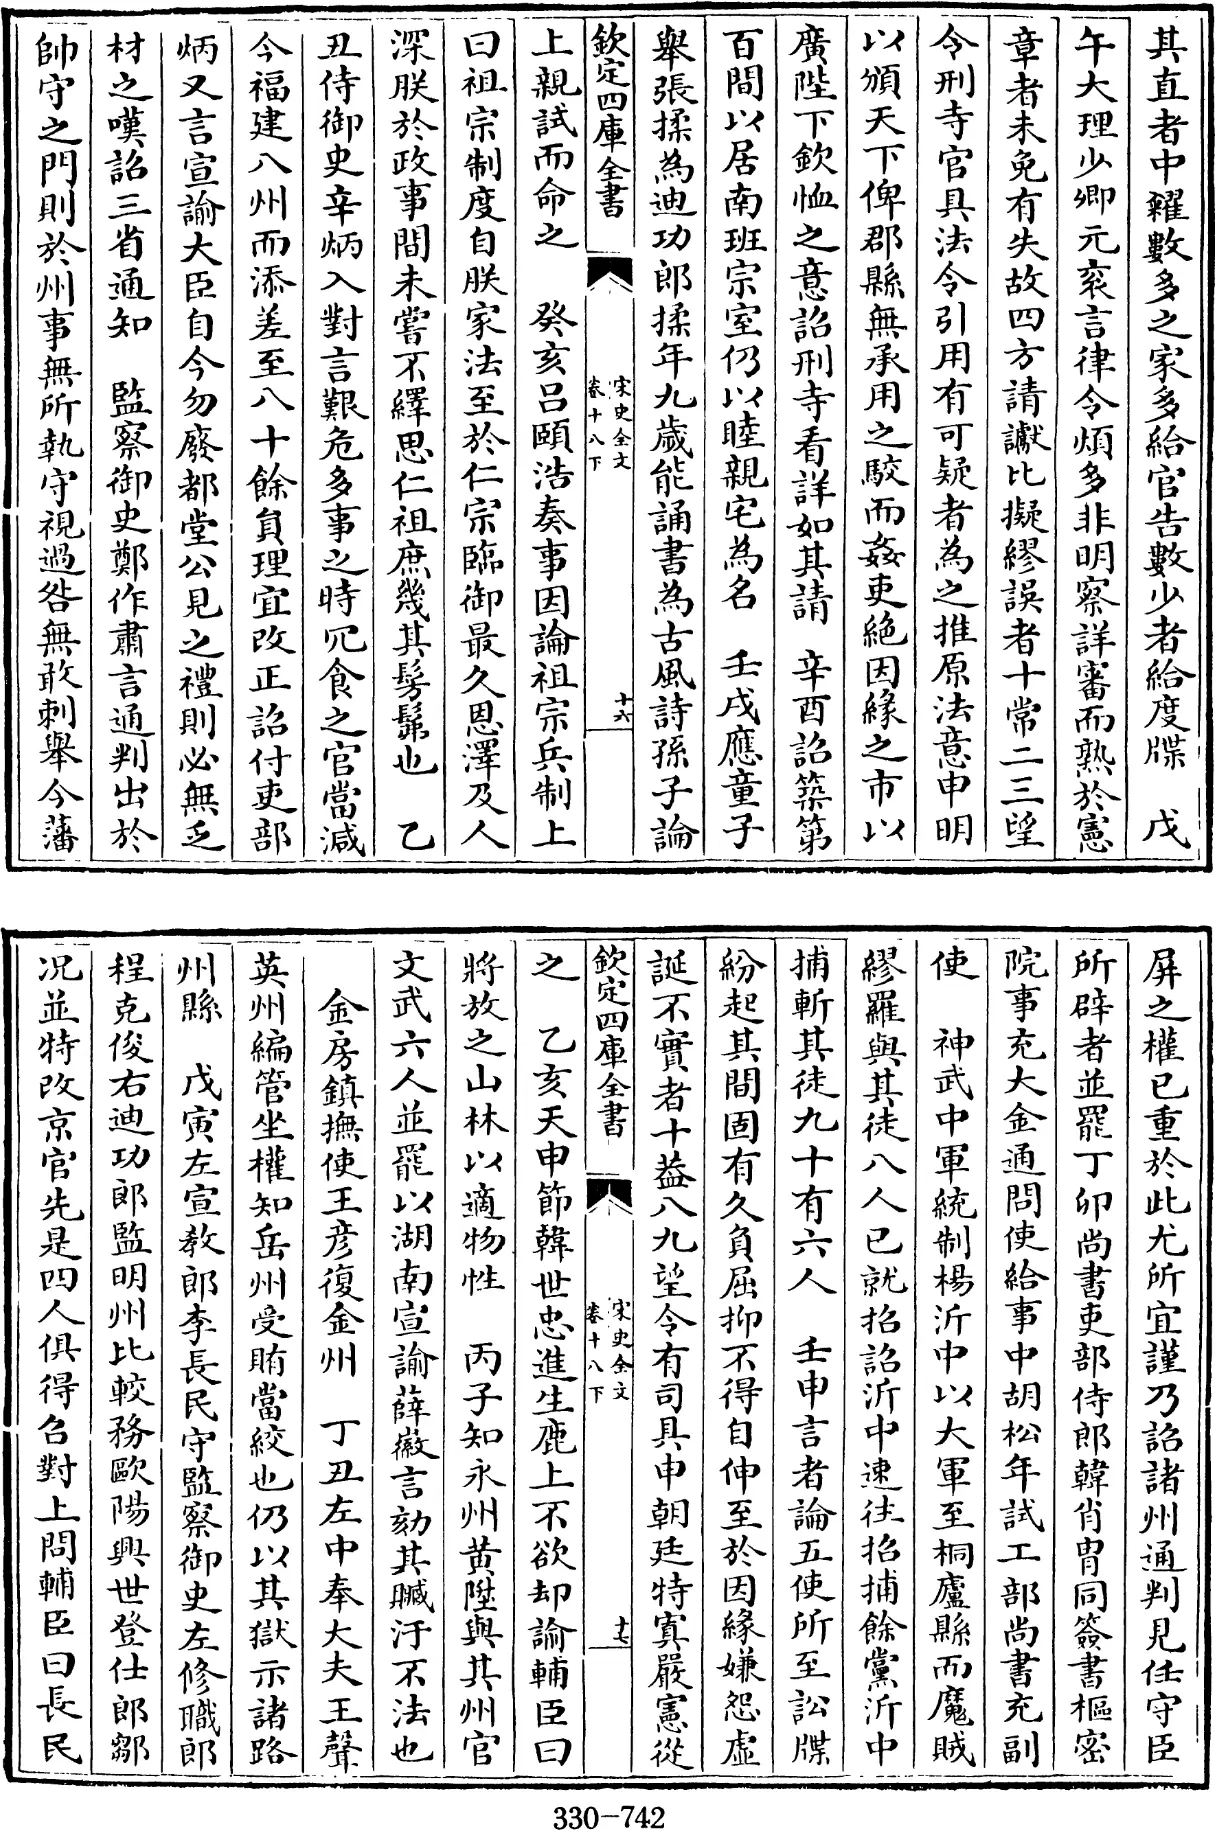 其直者中糴數多之家多給官告數少者給度牒　戊
午大理少卿元衮言律令煩多非明察詳審而熟於憲
章者未免有失故四方請讞比擬繆誤者十常二三望
令刑寺官具法令引用有可疑者為之推原法意申明
以頒天下俾郡縣無承用之駮而姦吏絶因緣之市以
廣陛下欽恤之意詔刑寺看詳如其請　辛酉詔築第
百間以居南班宗室仍以睦親宅為名　壬戌應童子
舉張揉為迪功郎揉年九歲能誦書為古風詩孫子論
欽定四庫全書　宋史全文卷十八下　十六
上親試而命之　癸亥吕頤浩奏事因論祖宗兵制上
曰祖宗制度自朕家法至於仁宗臨御最久恩澤及人
深朕於政事間未嘗不繹思仁祖庶幾其髣髴也　乙
丑侍御史辛炳入對言艱危多事之時冗食之官當減
今福建八州而添差至八十餘員理宜改正詔付吏部
炳又言宣諭大臣自今勿廢都堂公見之禮則必無乏
材之嘆詔三省通知　監察御史鄭作肅言通判出於
帥守之門則於州事無所執守視過咎無敢刺舉今藩
屏之權已重於此尤所宜謹乃詔諸州通判見任守臣
所辟者並罷丁卯尚書吏部侍郎韓肖胄同簽書樞密
院事充大金通問使給事中胡松年試工部尚書充副
使　神武中軍統制楊沂中以大軍至桐廬縣而魔賊
繆羅與其徒八人已就招詔沂中速往招捕餘黨沂中
捕斬其徒九十有六人　壬申言者論五使所至訟牒
紛起其間固有久負屈抑不得自伸至於因緣嫌怨虚
誕不實者十葢八九望令有司具申朝廷特寘嚴憲從
欽定四庫全書　宋史全文卷十八下　十七
之　乙亥天申節韓世忠進生鹿上不欲却諭輔臣曰
將放之山林以適物性　丙子知永州黄陞與其州官
文武六人並罷以湖南宣諭薛徽言劾其贓汙不法也
金房鎮撫使王彦復金州　丁丑左中奉大夫王聲
英州編管坐權知岳州受賄當絞也仍以其獄示諸路
州縣　戊寅左宣教郎李長民守監察御史左修職郎
程克俊右迪功郎監明州比較務歐陽興世登仕郎鄒
况並特改京官先是四人俱得召對上問輔臣曰長民
330-742